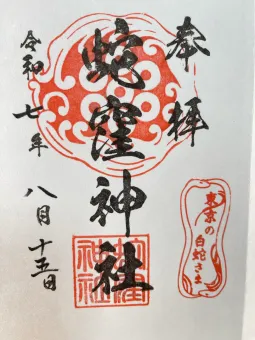 奉拝
蛇窪神社
令和七年
八月十五日
東京の
白蛇さま